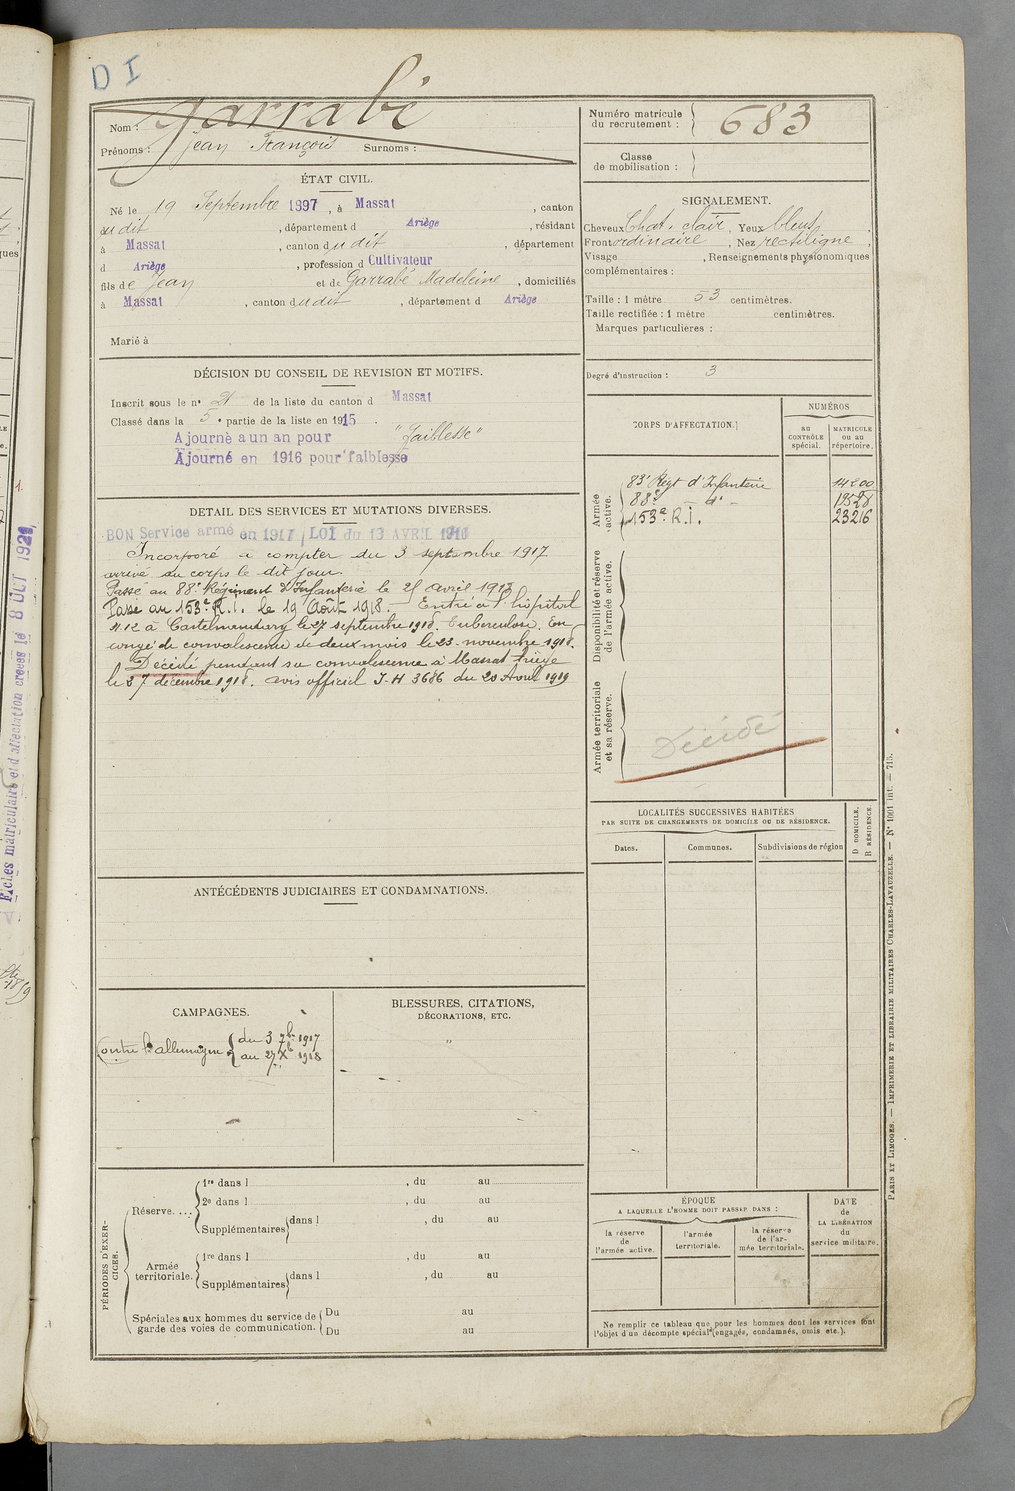 D I
Nom : Garrabé
Prénoms : Jean François Surnoms :
Numéro matricule du recrutement : 683
Classe de mobilisation :
ÉTAT CIVIL.
Né le 19 Septembre 1897, à Massat, canton
sudit, département d Ariège, résidant
à Massat, canton dudit, département
d Ariège, profession d Cultivateur
fils de Jean et de Garrabé Madeleine, domiciliés
à Massat, canton dudit, département d Ariège
Marié à
SIGNALEMENT.
Cheveux Chat. clair, Yeux bleus,
Front ordinaire, Nez rectiligne
Visage , Renseignements physionomiques
complémentaires :
Taille : 1 mètre 53 centimètres.
Taille rectifiée : 1 mètre centimètres.
Marques particulières :
Degré d'instruction : 3
DÉCISION DU CONSEIL DE REVISION ET MOTIFS.
Inscrit sous le n° 21 de la liste du canton d Massat
Classé dans la 5e partie de la liste en 1915.
Ajourné a un an pour "Faiblesse"
Ajourné en 1916 pour faiblesse
DETAIL DES SERVICES ET MUTATIONS DIVERSES.
BON Service armé en 1917 LOI du 13 AVRIL 1916
Incorporé à compter du 3 septembre 1917
arrivé au corps le dit jour.
Passé au 88e Régiment d'Infanterie le 25 avril 1918
Passé au 153e R.I. le 19 Août 1918. — Entré à l'hôpital
n. 12 à Castelnaudary le 27 septembre 1918. Tuberculose. En
congé de convalescence de deux mois le 23 novembre 1918.
Décédé pendant sa convalescence à Massat Ariège
le 27 décembre 1918. avis officiel J-H 3686 du 20 Avril 1919
CORPS D'AFFECTATION.
NUMÉROS
au CONTRÔLE spécial.
MATRICULE ou au répertoire.
Armée active.
83e Régt d'Infanterie 14200
88e — do — 19528
153e R.I. 23216
Disponibilité et réserve de l'armée active.
Armée territoriale et sa réserve.
Décédé
LOCALITÉS SUCCESSIVES HABITÉES
PAR SUITE DE CHANGEMENTS DE DOMICILE OU DE RÉSIDENCE.
Dates.
Communes.
Subdivisions de région
D DOMICILE.
R RÉSIDENCE.
ANTÉCÉDENTS JUDICIAIRES ET CONDAMNATIONS.
CAMPAGNES.
Contre l'allemagne { du 3 7bre 1917
au 27 Xbre 1918
BLESSURES, CITATIONS,
DÉCORATIONS, ETC.
"
PÉRIODES D'EXERCICES.
Réserve....
1re dans l , du au
2e dans l , du au
Supplémentaires dans l , du au
Armée territoriale.
1re dans l , du au
Supplémentaires dans l , du au
Spéciales aux hommes du service de garde des voies de communication.
Du au
Du au
ÉPOQUE
A LAQUELLE L'HOMME DOIT PASSER DANS :
la réserve de l'armée active.
l'armée territoriale.
la réserve de l'armée territoriale.
DATE de LA LIBÉRATION du service militaire.
Ne remplir ce tableau que pour les hommes dont les services font
l'objet d'un décompte spécial (engagés, condamnés, omis etc.).
PARIS ET LIMOGES. — IMPRIMERIE ET LIBRAIRIE MILITAIRES CHARLES-LAVAUZELLE. — N° 1001 int. — 715.
Fiches matriculaire et d'affectation créées le 8 OCT 1921